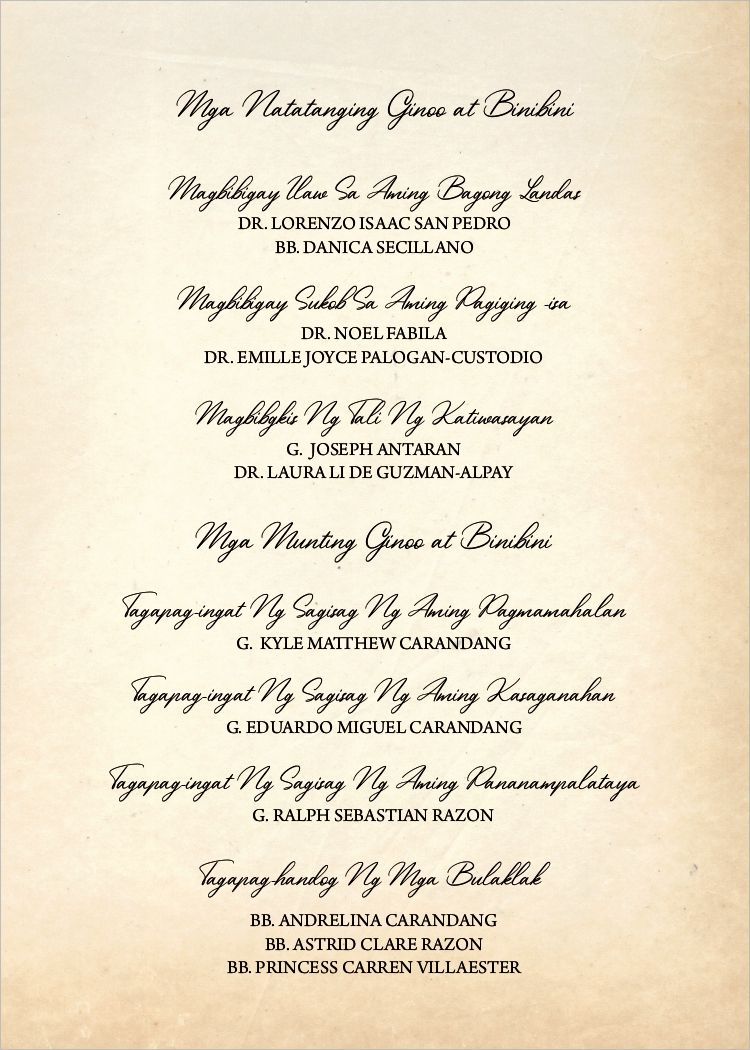 Mga Natatanging Ginoo at Binibini
Magbibigay Ilaw Sa Aming Bagong Landas
DR. LORENZO ISAAC SAN PEDRO
BB. DANICA SECILLANO
Magbibigay Sukob Sa Aming Pagiging -isa
DR. NOEL FABILA
DR. EMILLE JOYCE PALOGAN-CUSTODIO
Magbibgkis Ng Tali Ng Katiwasayan
G. JOSEPH ANTARAN
DR. LAURA LI DE GUZMAN-ALPAY
Mga Munting Ginoo at Binibini
Tagapag-ingat Ng Sagisag Ng Aming Pagmamahalan
G. KYLE MATTHEW CARANDANG
Tagapag-ingat Ng Sagisag Ng Aming Kasaganahan
G. EDUARDO MIGUEL CARANDANG
Tagapag-ingat Ng Sagisag Ng Aming Pananampalataya
G. RALPH SEBASTIAN RAZON
Tagapag-handog Ng Mga Bulaklak
BB. ANDRELINA CARANDANG
BB. ASTRID CLARE RAZON
BB. PRINCESS CARREN VILLAESTER